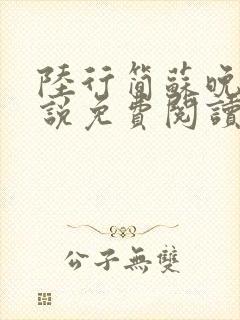 陸行簡蘇晚
說免費閱讀
公子無雙